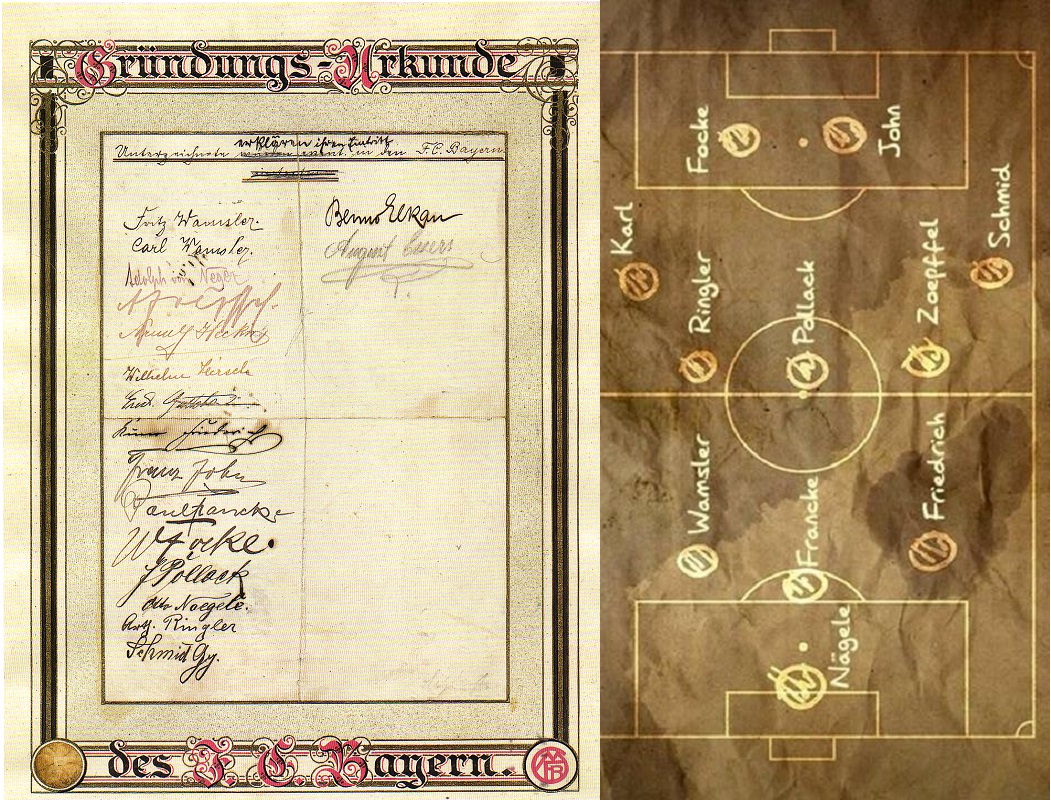 Gründungs-Urkunde
erklären ihren Eintritt
Unterzeichnete in den F.C. Bayern
Fritz Wamsler.
Carl Wamsler.
Benno Elkan
August
Adolph von Neger
Wilhelm Hirsch
Friedrich
Franz John
Paul Francke
W Focke.
J Pollack
Otto Naegele.
Arth. Ringler
Schmid Gg.
des F. C. Bayern.
Focke
John
Karl
Schmid
Ringler
Pollack
Zoepffel
Wamsler
Francke
Friedrich
Nägele